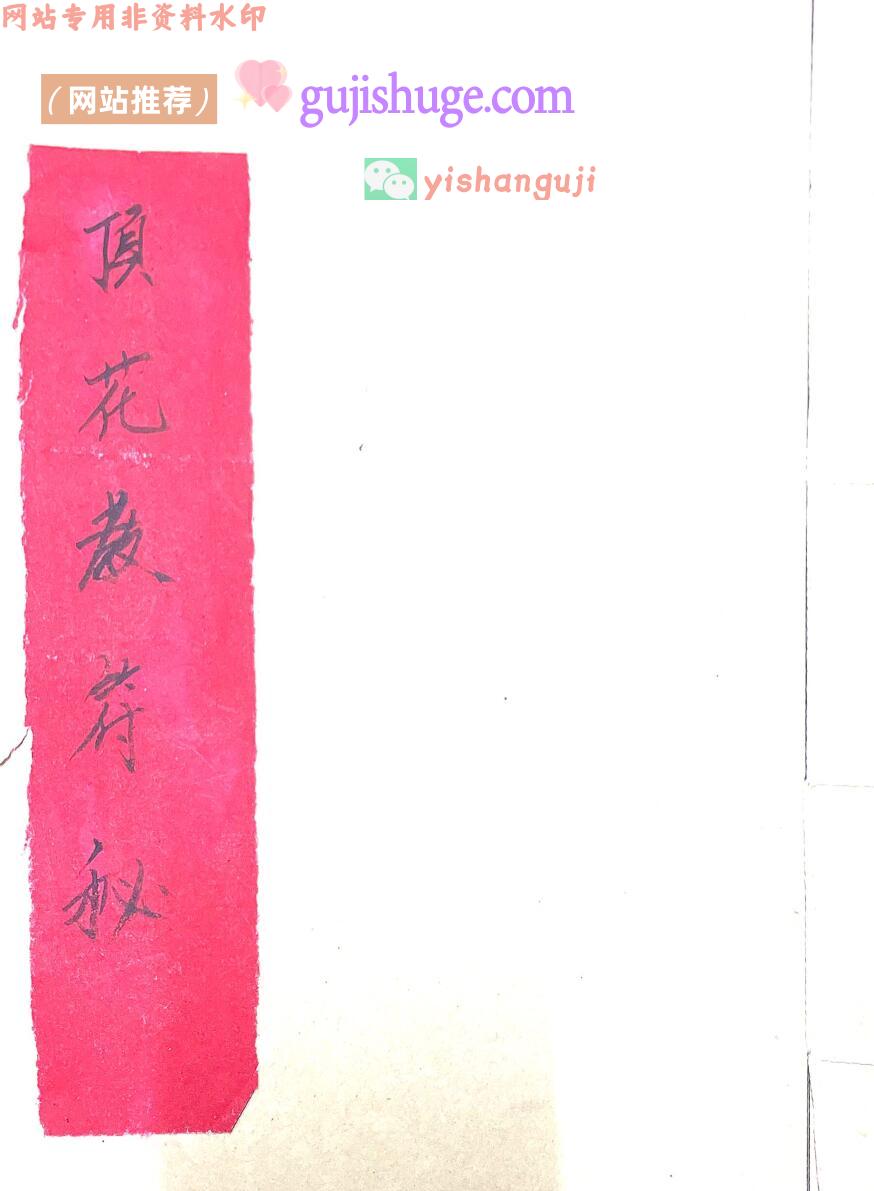 网站专用非资料水印
（网站推荐） gujishuge.com
yishanguji
頂花教符秘